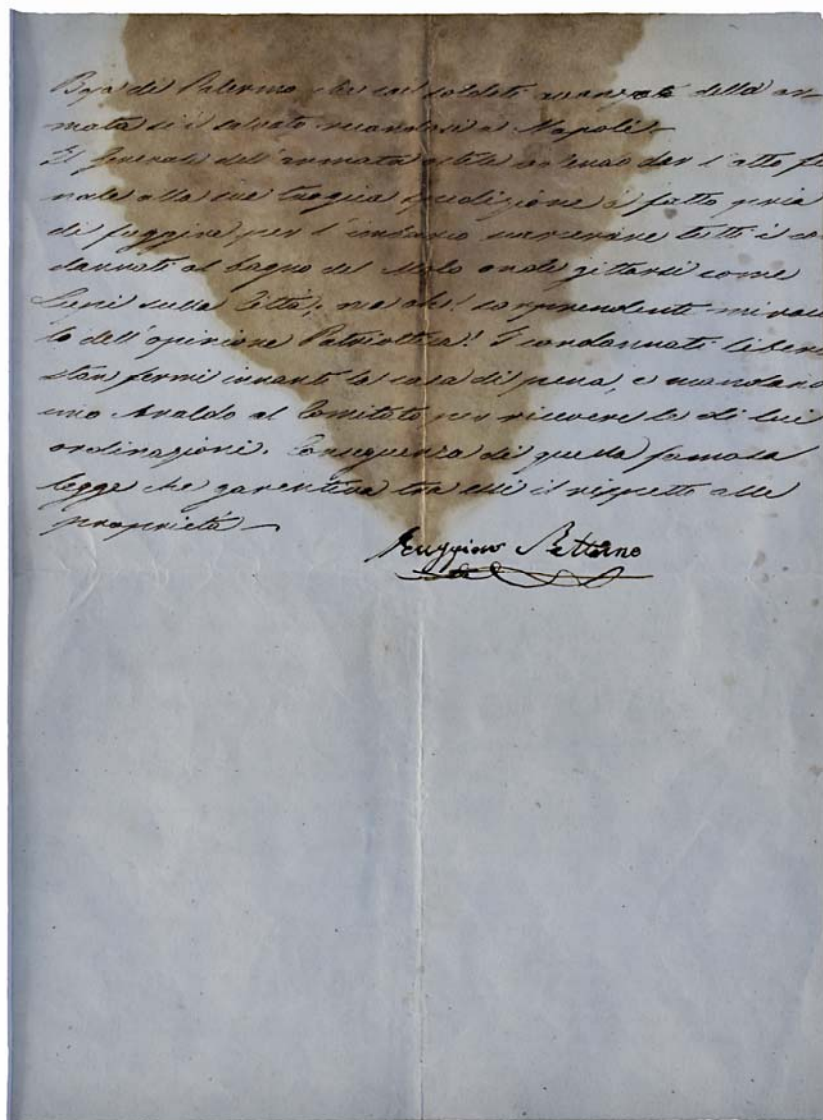 Boja di Palermo che coi soldati avanzati della ar-
mata si è salvato recandosi a Napoli –
Il Generale dell'armata ostile volendo dar l'atto fi
nale alla sua tragica spedizione à fatto pria
di fuggire per l'imbarco scarcerare tutti i con
dannati al bagno del Molo onde gittarsi come
Jene sulla Città; ma che! sorprendente miraco
lo dell'opinione Patriottica! I condannati liberi
stan fermi innanti la casa di pena, e mandano
uno Araldo al Comitato per ricevere le di lui
ordinazioni. Conseguenza di queda famosa
legge che garentiva tra essi il rispetto alle
proprietà –
Ruggiero Settimo